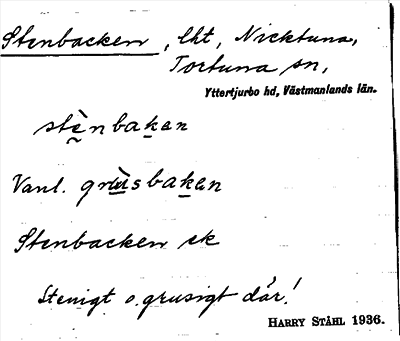 Stenbacken, lht, Nicktuna,
Tortuna sn,
Yttertjurbo hd, Västmanlands län.
stè̱nbaḵen
Vanl. grùsbaḵen
Stenbacken ek
Stenigt o. grusigt där!
HARRY STÅHL 1936.